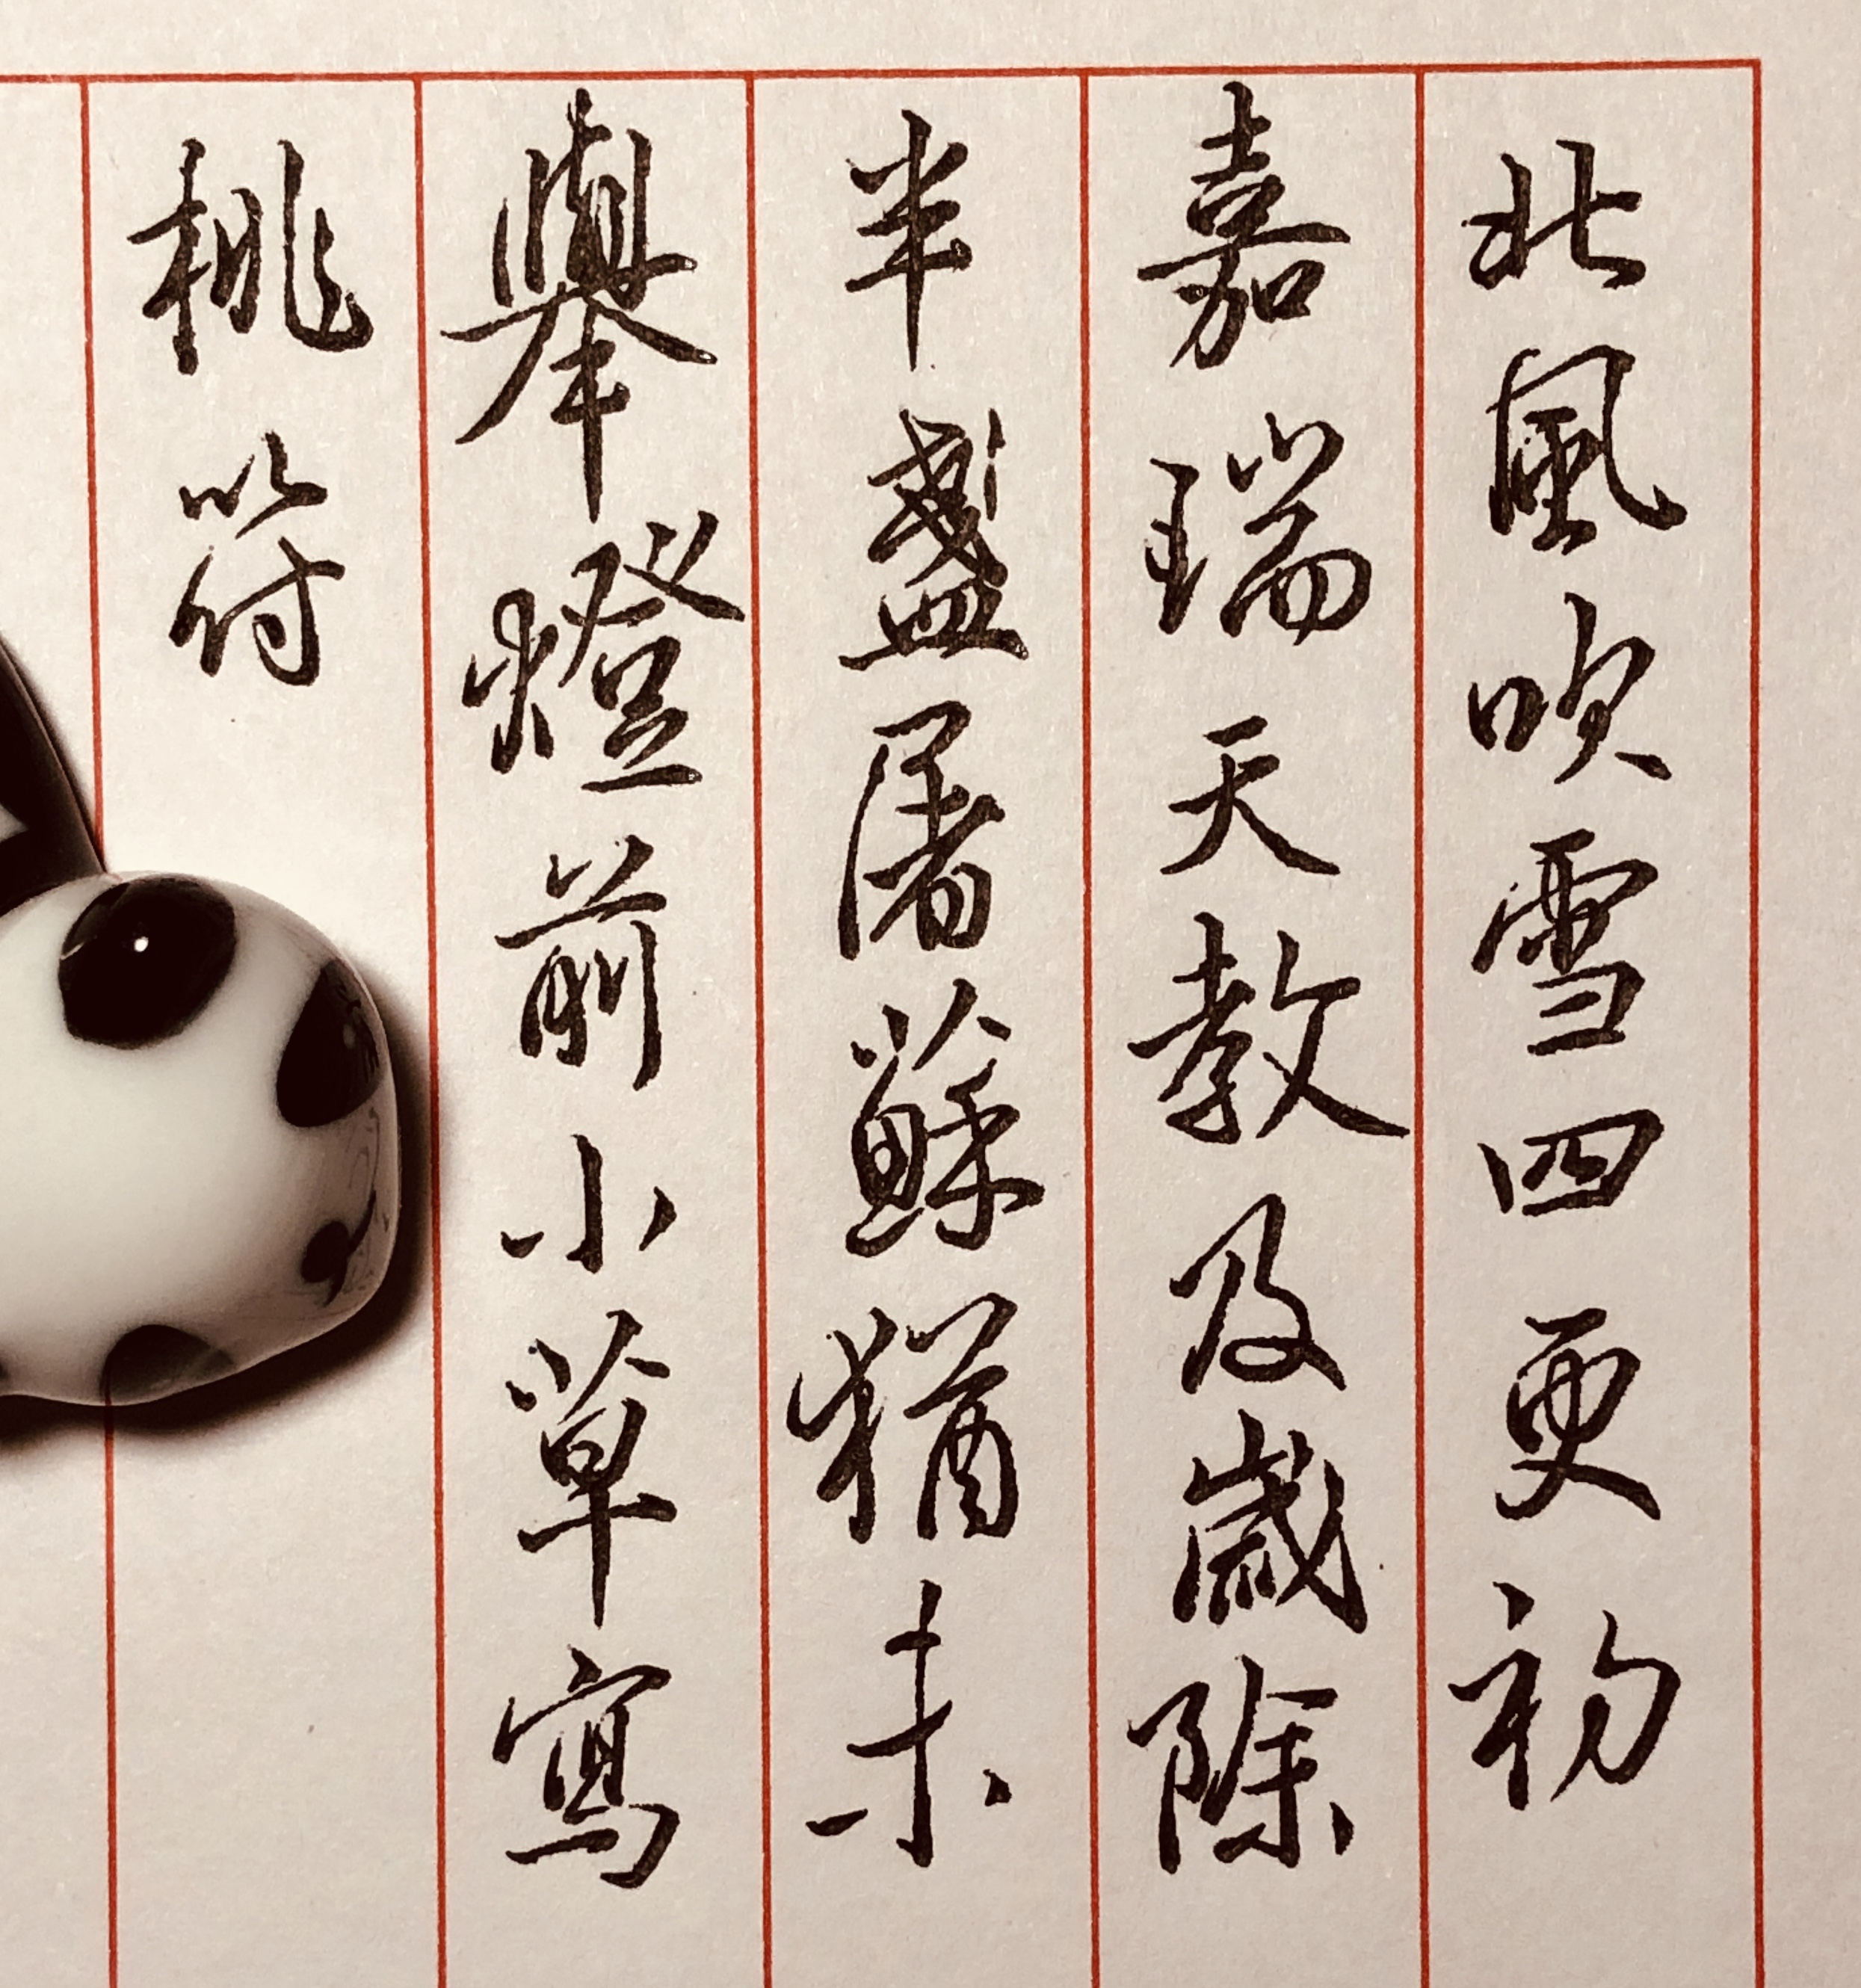 北風吹雪四更初
嘉瑞天教及歲除
半盞屠蘇猶未
舉燈前小草寫
桃符